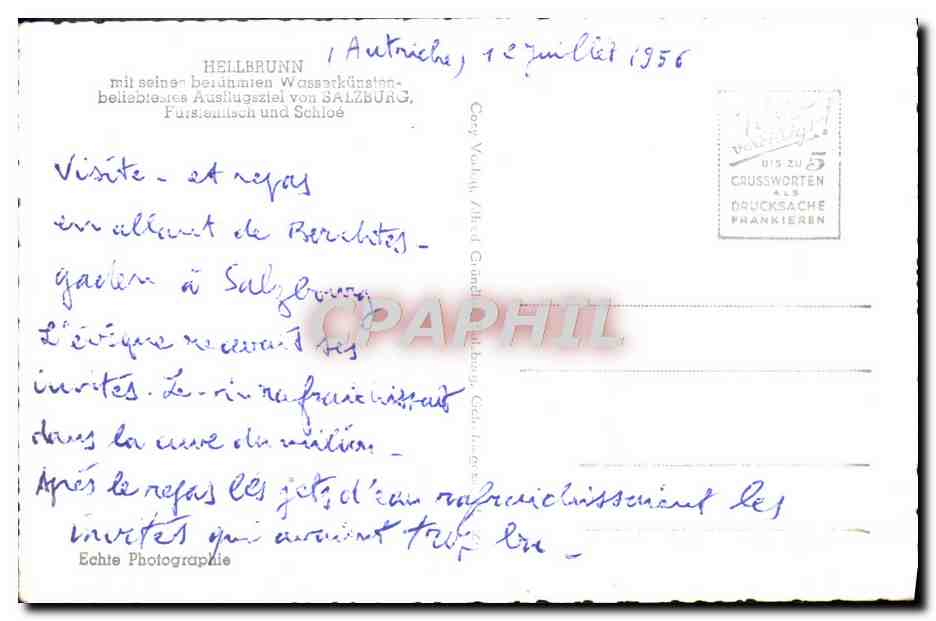 (Autriche, 12 juillet 1956
HELLBRUNN
mit seinen berühmten Wasserkünsten-
beliebtestes Ausflugsziel von SALZBURG,
Fürstentisch und Schloß
BIS ZU 5
GRUSSWORTEN
ALS
DRUCKSACHE
FRANKIEREN
Visite - et repas
en allant de Berchtes-
gaden à Salzbourg
L'évêque recevait ses
invités. Le vin rafraichissait
dans la cuve du milieu -
Après le repas les jets d'eau rafraichissaient les
invités qui avaient trop bu -
Echte Photographie
Cosy Verlag, Alfred Gründler, Salzburg,
CPAPHIL